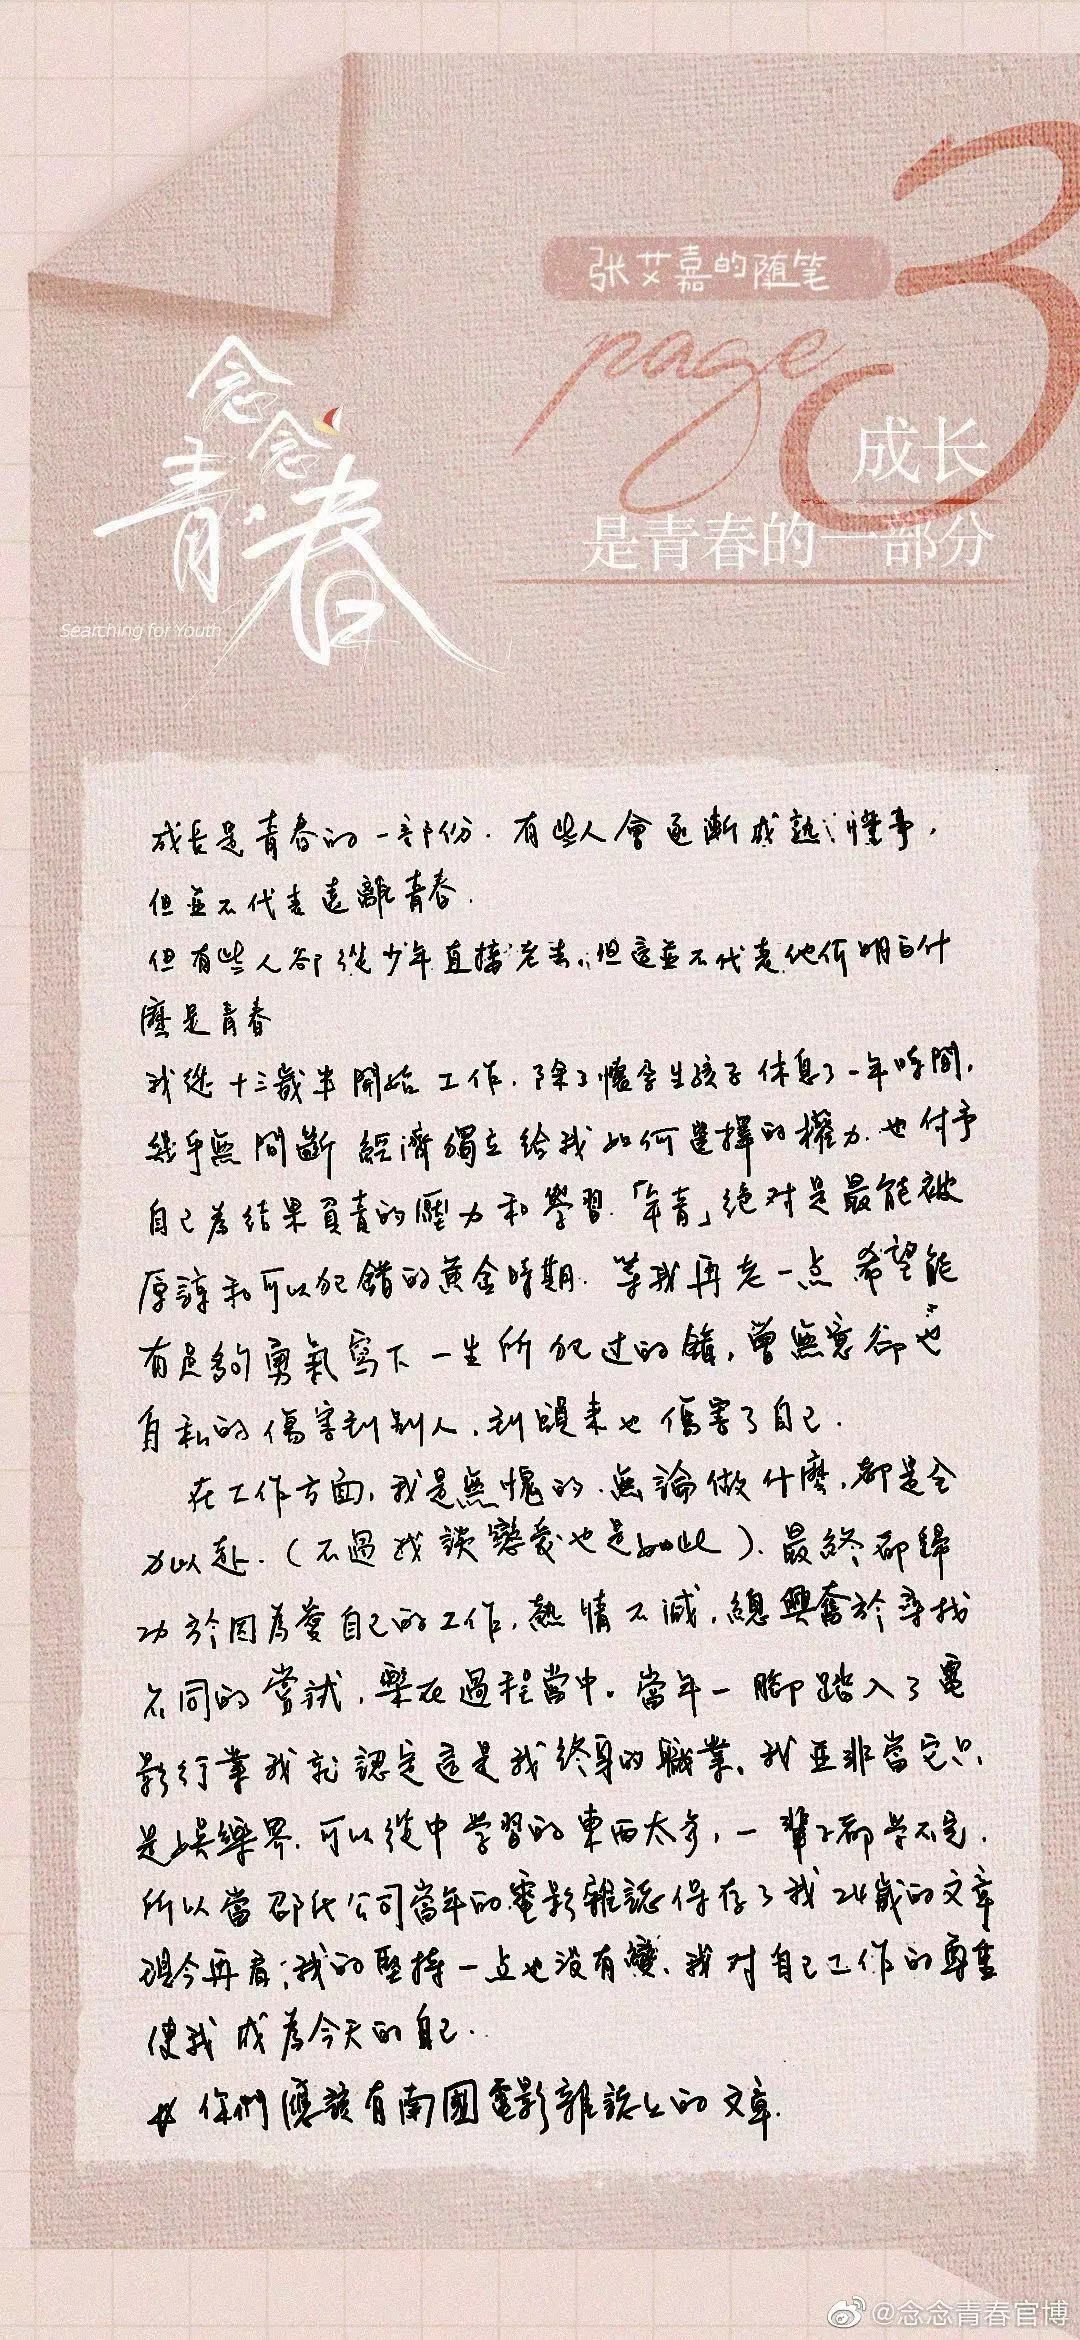 张艾嘉的随笔
page 3
念念
青春
Searching for Youth
成长
是青春的一部分
成長是青春的一部份．有些人會逐漸成熟，懂事，
但並不代表遠離青春．
但有些人卻從少年直接老去，但這並不代表他們明白什
麼是青春
我從十三歲半開始工作．除了懷孕生孩子休息了一年時間，
幾乎無間斷 經濟獨立給我如何選擇的權力．也付予
自己為結果負責的壓力和學習．「年青」絕对是最能被
原諒和可以犯錯的黃金時期．等我再老一点 希望能
有足夠勇氣寫下一生所犯过的錯，曾無意卻也
自私的傷害到别人，到頭来也傷害了自己．
在工作方面，我是無愧的．無論做什麼，都是全
力以赴．（不過我談戀愛也是如此）．最終都歸
功於因為愛自己的工作，熱情不減，總興奮於尋找
不同的嘗試，樂在過程當中。當年一腳踏入了電
影行業我就認定這是我終身的職業，我並非當它只
是娛樂界．可以從中学習的東西太多，一輩子都学不完．
所以當邵氏公司當年的電影雜誌保存了我24歲的文章
現今再看，我的堅持一点也没有變、我对自己工作的尊重
使我成為今天的自己．
* 你們應該有南國電影雜誌上的文章．
@念念青春官博